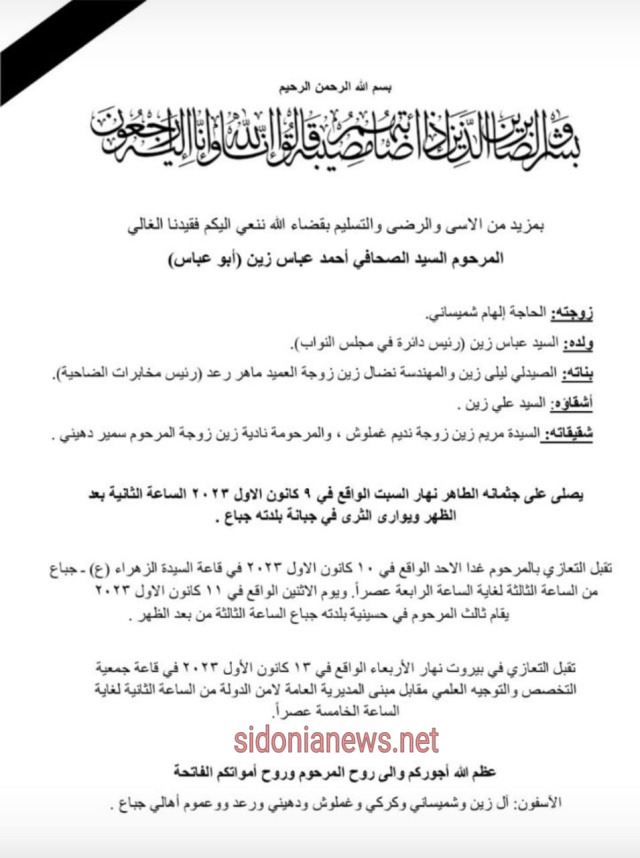 بسم الله الرحمن الرحيم
وبشر الصابرين الذين إذا أصابتهم مصيبة قالوا إنا لله وإنا إليه راجعون
بمزيد من الاسى والرضى والتسليم بقضاء الله ننعي اليكم فقيدنا الغالي
المرحوم السيد الصحافي أحمد عباس زين (أبو عباس)
زوجته: الحاجة إلهام شميساني.
ولده: السيد عباس زين (رئيس دائرة في مجلس النواب).
بناته: الصيدلي ليلى زين والمهندسة نضال زين زوجة العميد ماهر رعد (رئيس مخابرات الضاحية).
أشقاؤه: السيد علي زين .
شقيقاته: السيدة مريم زين زوجة نديم غملوش ، والمرحومة نادية زين زوجة المرحوم سمير دهيني .
يصلى على جثمانه الطاهر نهار السبت الواقع في ٩ كانون الاول ٢٠٢٣ الساعة الثانية بعد
الظهر ويوارى الثرى في جبانة بلدته جباع .
تقبل التعازي بالمرحوم غدا الاحد الواقع في ١٠ كانون الاول ٢٠٢٣ في قاعة السيدة الزهراء (ع) - جباع
من الساعة الثالثة لغاية الساعة الرابعة عصراً. ويوم الاثنين الواقع في ١١ كانون الاول ٢٠٢٣
يقام ثالث المرحوم في حسينية بلدته جباع الساعة الثالثة من بعد الظهر .
تقبل التعازي في بيروت نهار الأربعاء الواقع في ١٣ كانون الأول ٢٠٢٣ في قاعة جمعية
التخصص والتوجيه العلمي مقابل مبنى المديرية العامة لامن الدولة من الساعة الثانية لغاية
الساعة الخامسة عصراً.
sidonianews.net
عظم الله أجوركم والى روح المرحوم وروح أمواتكم الفاتحة
الآسفون: آل زين وشميساني وكركي وغملوش ودهيني ورعد ووعموم أهالي جباع .